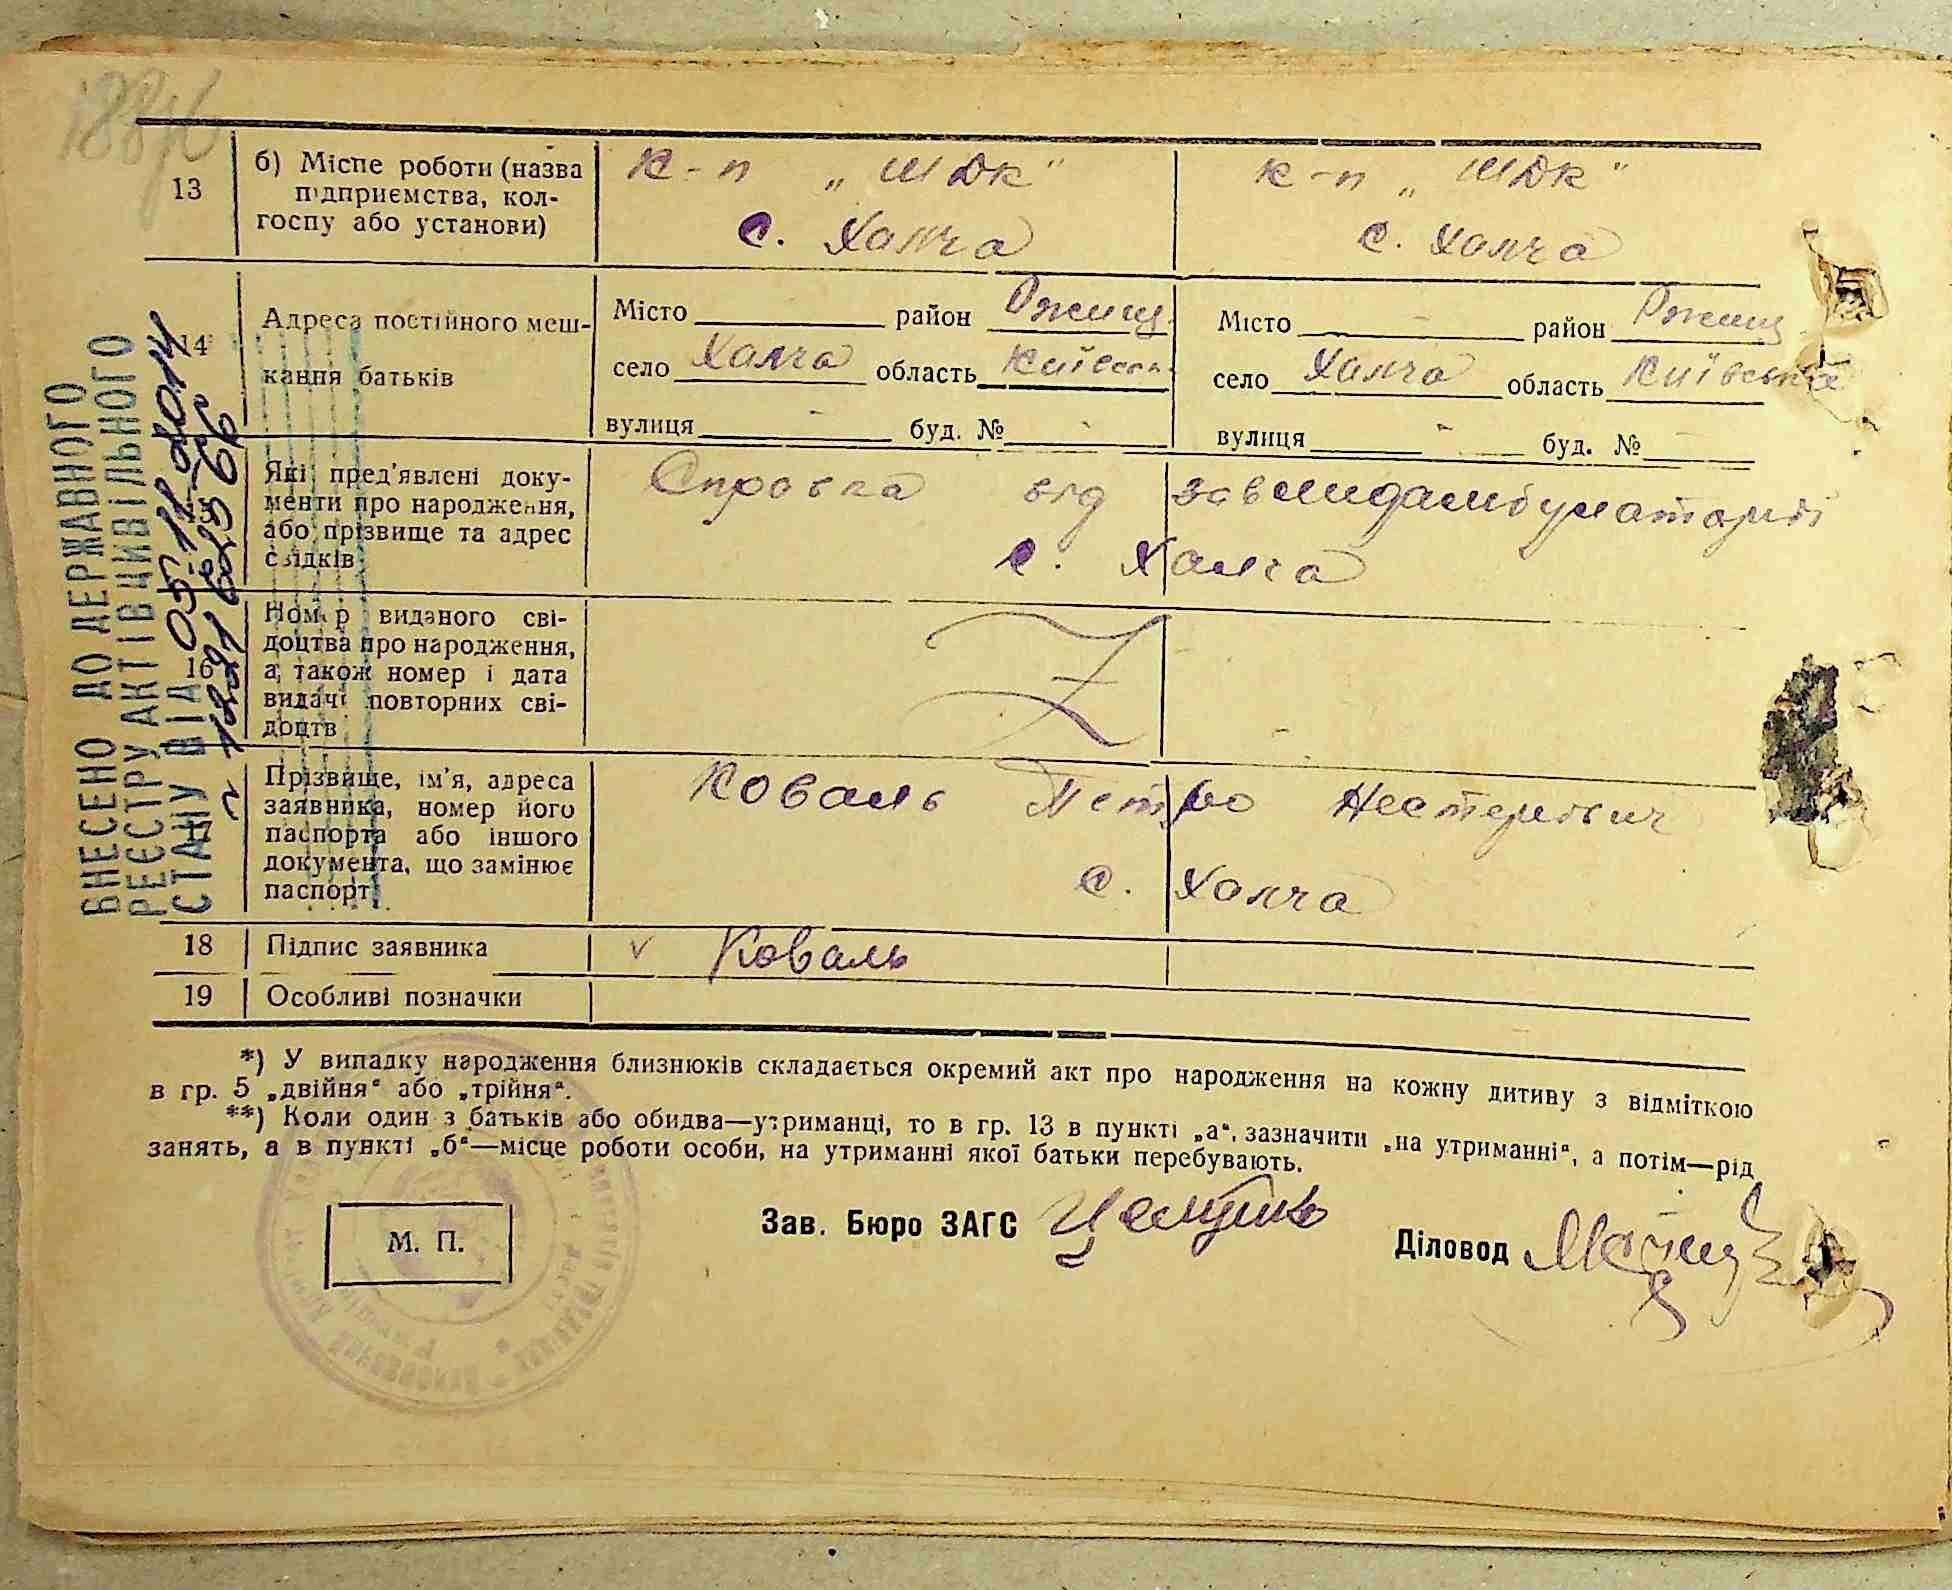 13
б) Місце роботи (назва
підприємства, кол-
госпу або установи)
к-п „ШДК"
с. Халча
к-п „ШДК"
с. Халча
14
Адреса постійного меш-
кання батьків
Місто район Ржищ.
село Халча область Київськ.
вулиця - буд. № -
Місто - район Ржищ
село Халча область Київська
вулиця - буд. № -
15
Які пред'явлені доку-
менти про народження,
або прізвище та адрес
свідків
Справка від завмедамбулаторії
с. Халча
16
Номер виданого сві-
доцтва про народження,
а також номер і дата
видачі повторних сві-
доцтв
Z
17
Прізвище, ім'я, адреса
заявника, номер його
паспорта або іншого
документа, що замінює
паспорт
Коваль Петро Нестерович
с. Халча
18
Підпис заявника
v Коваль
19
Особливі позначки
*) У випадку народження близнюків складається окремий акт про народження на кожну дитину з відміткою
в гр. 5 „двійня“ або „трійня“.
**) Коли один з батьків або обидва—утриманці, то в гр. 13 в пункті „а“, зазначити „на утриманні“, а потім—рід
занять, а в пункті „б“—місце роботи особи, на утриманні якої батьки перебувають.
М. П.
Зав. Бюро ЗАГС
Діловод
ВНЕСЕНО ДО ДЕРЖАВНОГО
РЕЄСТРУ АКТІВ ЦИВІЛЬНОГО
СТАНУ ВІД 05.11.2014